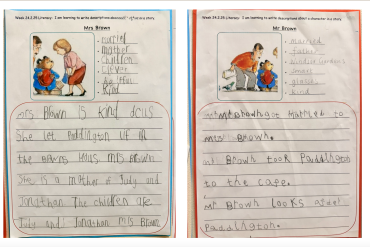 Week 24.2.25 Literacy: I am learning to write descriptions about a character in a story
Mrs Brown
married
mother
children
clever
kind
Mrs Brown is kind
She let Paddington
the Browns Mrs Brown
She is a mother of Judy and
Jonathan The children are
Judy and Jonathan Mrs Brown
Week 24.2.25 Literacy: I am learning to write descriptions about a character in a story
Mr Brown
married
father
Windsor Gardens
glasses
kind
Mr Brown got married to
Mrs Brown.
Mr Brown took Paddington
to the cafe.
Mr Brown looks after
Paddington.